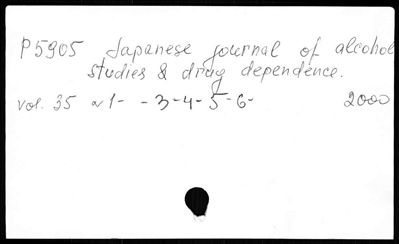 P5905 Japanese journal of alcohol
studies & drug dependence.
vol. 35 N 1- -3-4-5-6- 2000